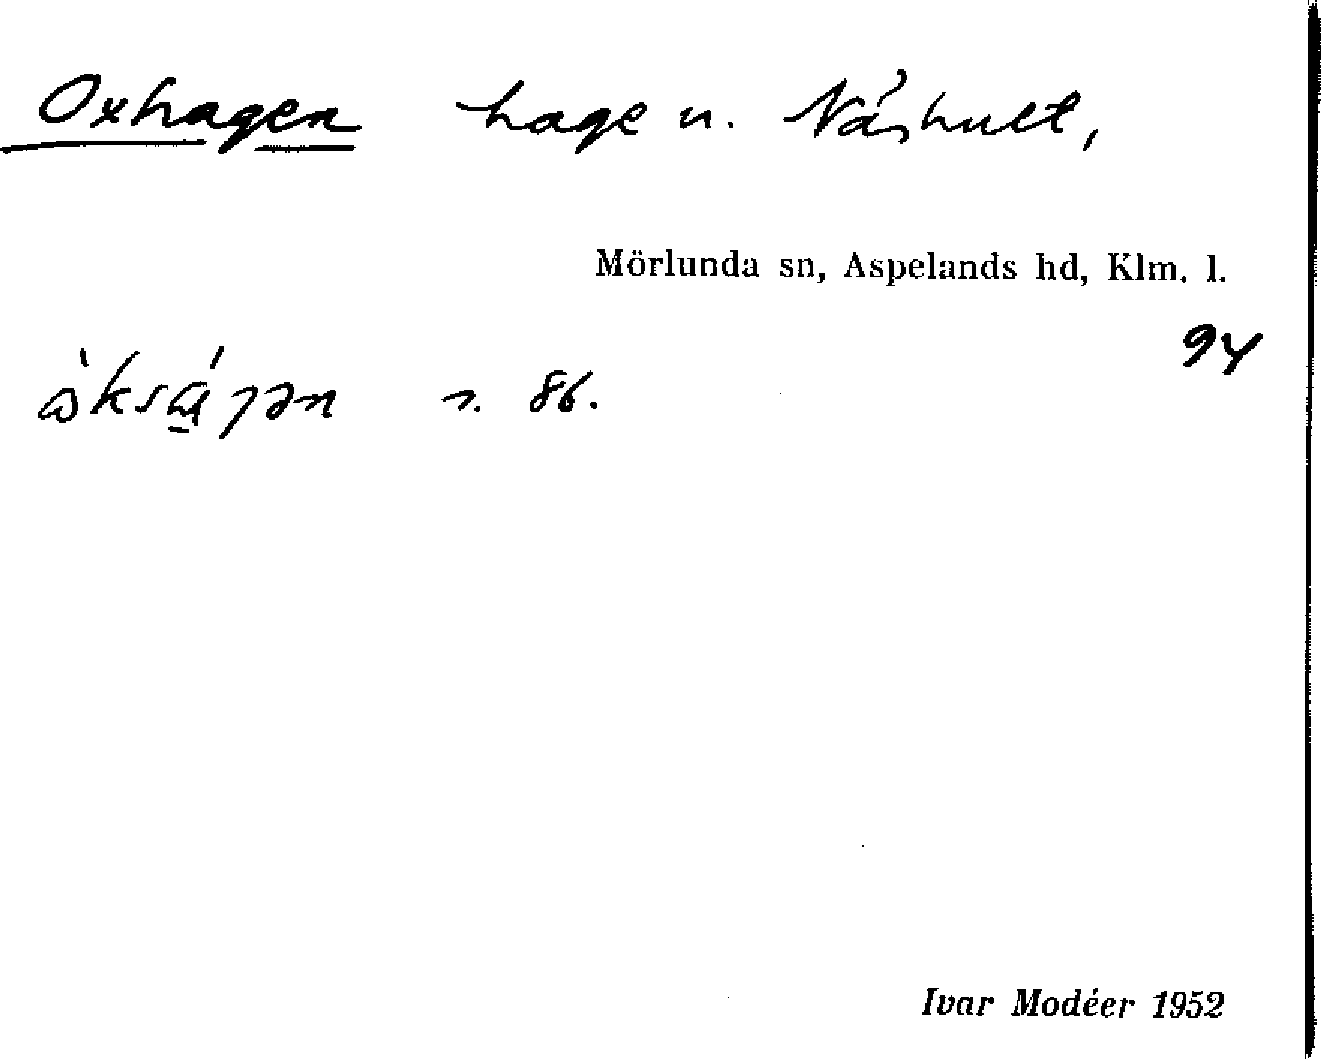 Oxhagen hage u. Näshult,
Mörlunda sn, Aspelands hd, Klm. l.
94
s. 86.
Ivar Modéer 1952